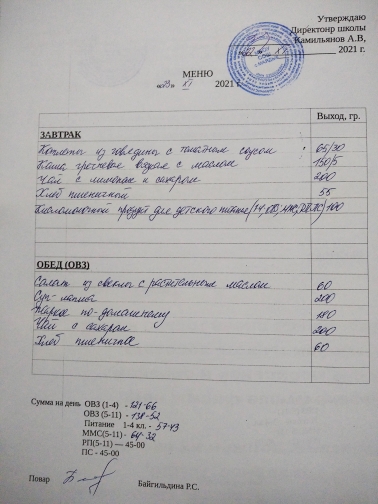 Утверждаю
Директонр школы
Камильянов А.В,
2021 г.
МЕНЮ
«23» XI 2021 г.
Выход, гр.
ЗАВТРАК
Котлеты из говядины с томатным соусом 65/30
Каша гречневая вязкая с маслом 150/5
Чай с лимоном и сахаром 200
Хлеб пшеничной 55
Кисломолочной продукт для детского питания 100
ОБЕД (ОВЗ)
Салат из свеклы с растительным маслом 60
Суп-лапша 200
Жаркое по-домашнему 180
Чай с сахаром 200
Хлеб пшеничное 60
Сумма на день ОВЗ (1-4) - 121-66
ОВЗ (5-11) - 138-52
Питание 1-4 кл. - 57-43
ММС(5-11) - 64-32
РП(5-11) — 45-00
ПС - 45-00
Повар Байгильдина Р.С.